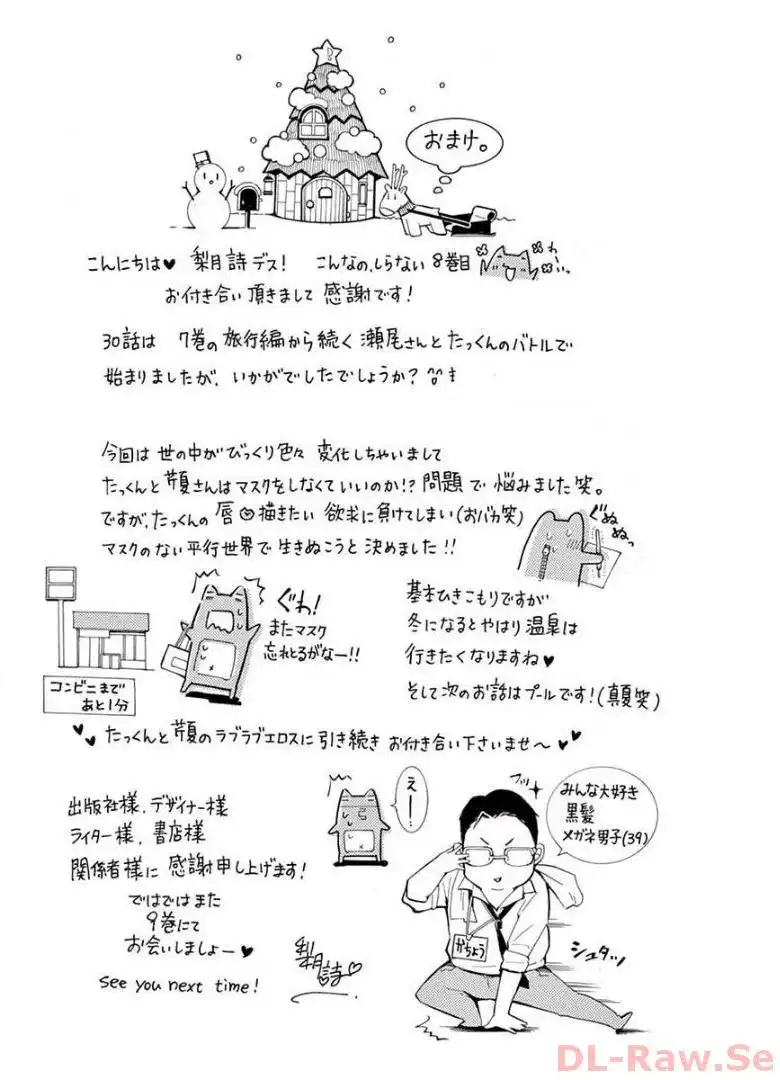 おまけ。
こんにちは♥ 梨月詩デス! こんなの、しらない 8巻目
わーいっ
お付き合い頂きまして 感謝です!
30話は 7巻の旅行編から続く瀬尾さんとたっくんのバトルで
始まりましたが、いかがでしたでしょうか?
今回は世の中がびっくり色々 変化しちゃいまして
たっくんと芽夏さんはマスクをしなくていいのか!? 問題で悩みました笑。
ですが、たっくんの唇 描きたい 欲求に負けてしまい(おバカ笑)
マスクのない平行世界で生きぬこうと決めました!!
ぐぬぬぬっ
コンビニまで
あと1分
ぐわ!
またマスク
忘れとるがなー!!
基本ひきこもりですが
冬になるとやはり温泉は
行きたくなりますね♥
そして次のお話はプールです!(真夏笑)
たっくんと芽夏のラブラブエロスに引き続き お付き合い下さいませ〜♥♥
出版社様、デザイナー様
ライター様、書店様
関係者様に 感謝申し上げます!
ではではまた
9巻にて
お会いしましょー♥
see you next time!
梨月詩♡
えー
みんな大好き
黒髪
メガネ男子(39)
かちょう
シュタッ
DL-Raw.Se